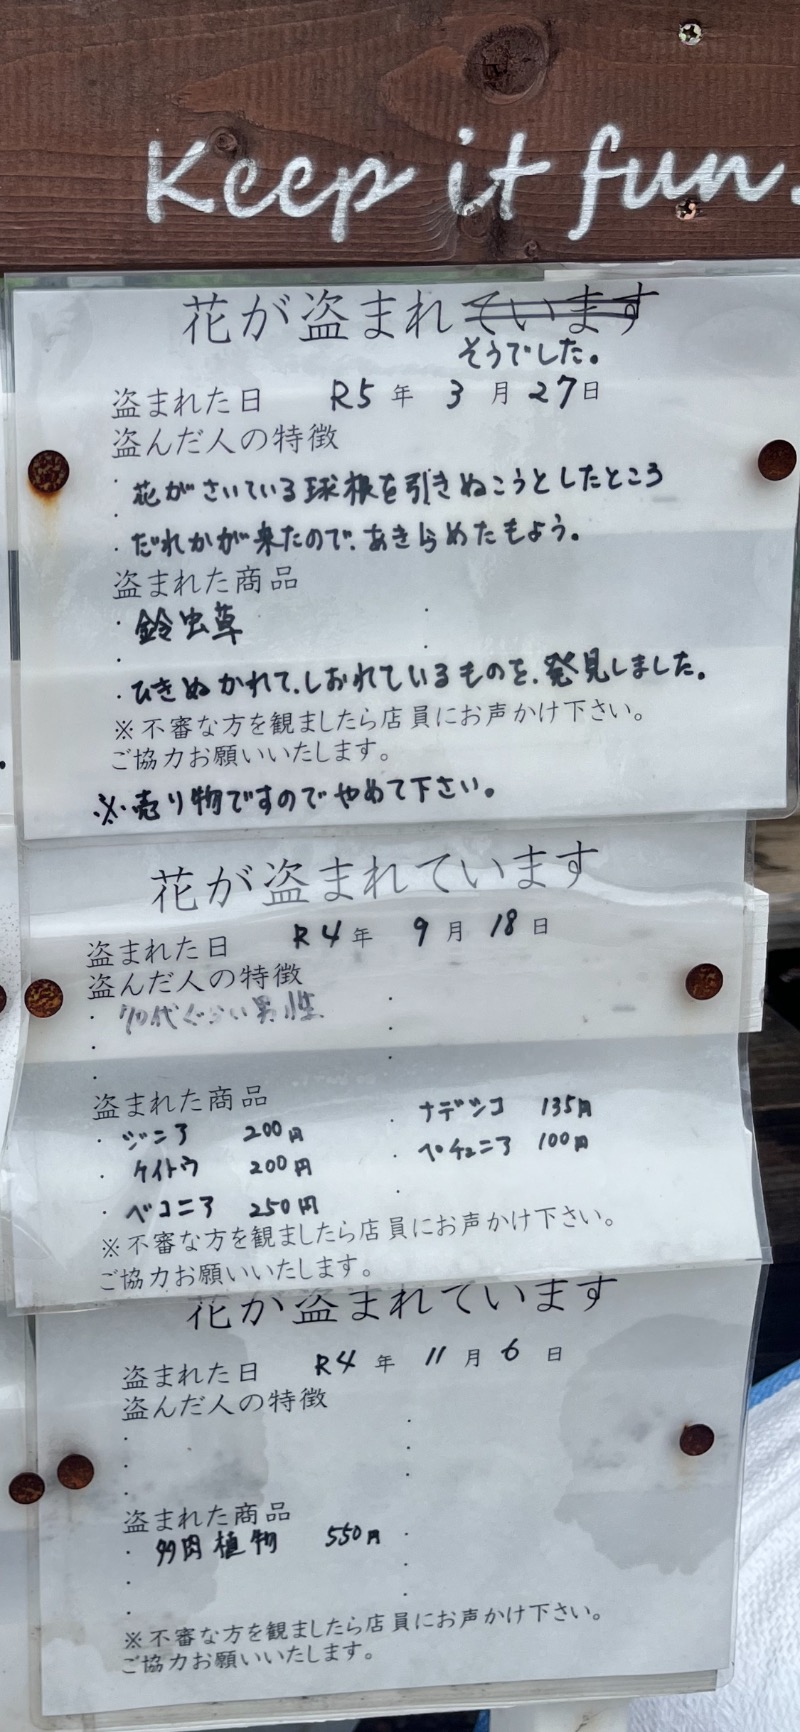 Keep it fun.
花が盗まれています
そうでした。
盗まれた日 R5年 3月27日
盗んだ人の特徴
・花がさいている球根を引きぬこうとしたところ
・だれかが来たので、あきらめたもよう。
盗まれた商品
・鈴虫草
・ひきぬかれて、しおれているものを、発見しました。
※不審な方を観ましたら店員にお声かけ下さい。
ご協力お願いいたします。
※売り物ですのでやめて下さい。
花が盗まれています
盗まれた日 R4年 9月 18日
盗んだ人の特徴
・70代ぐらい男性
盗まれた商品
・ジニア 200円 ・ナデシコ 135円
・ケイトウ 200円 ・ペチュニア 100円
・ベコニア 250円
※不審な方を観ましたら店員にお声かけ下さい。
ご協力お願いいたします。
花が盗まれています
盗まれた日 R4年 11月 6日
盗んだ人の特徴
盗まれた商品
・多肉植物 550円
※不審な方を観ましたら店員にお声かけ下さい。
ご協力お願いいたします。